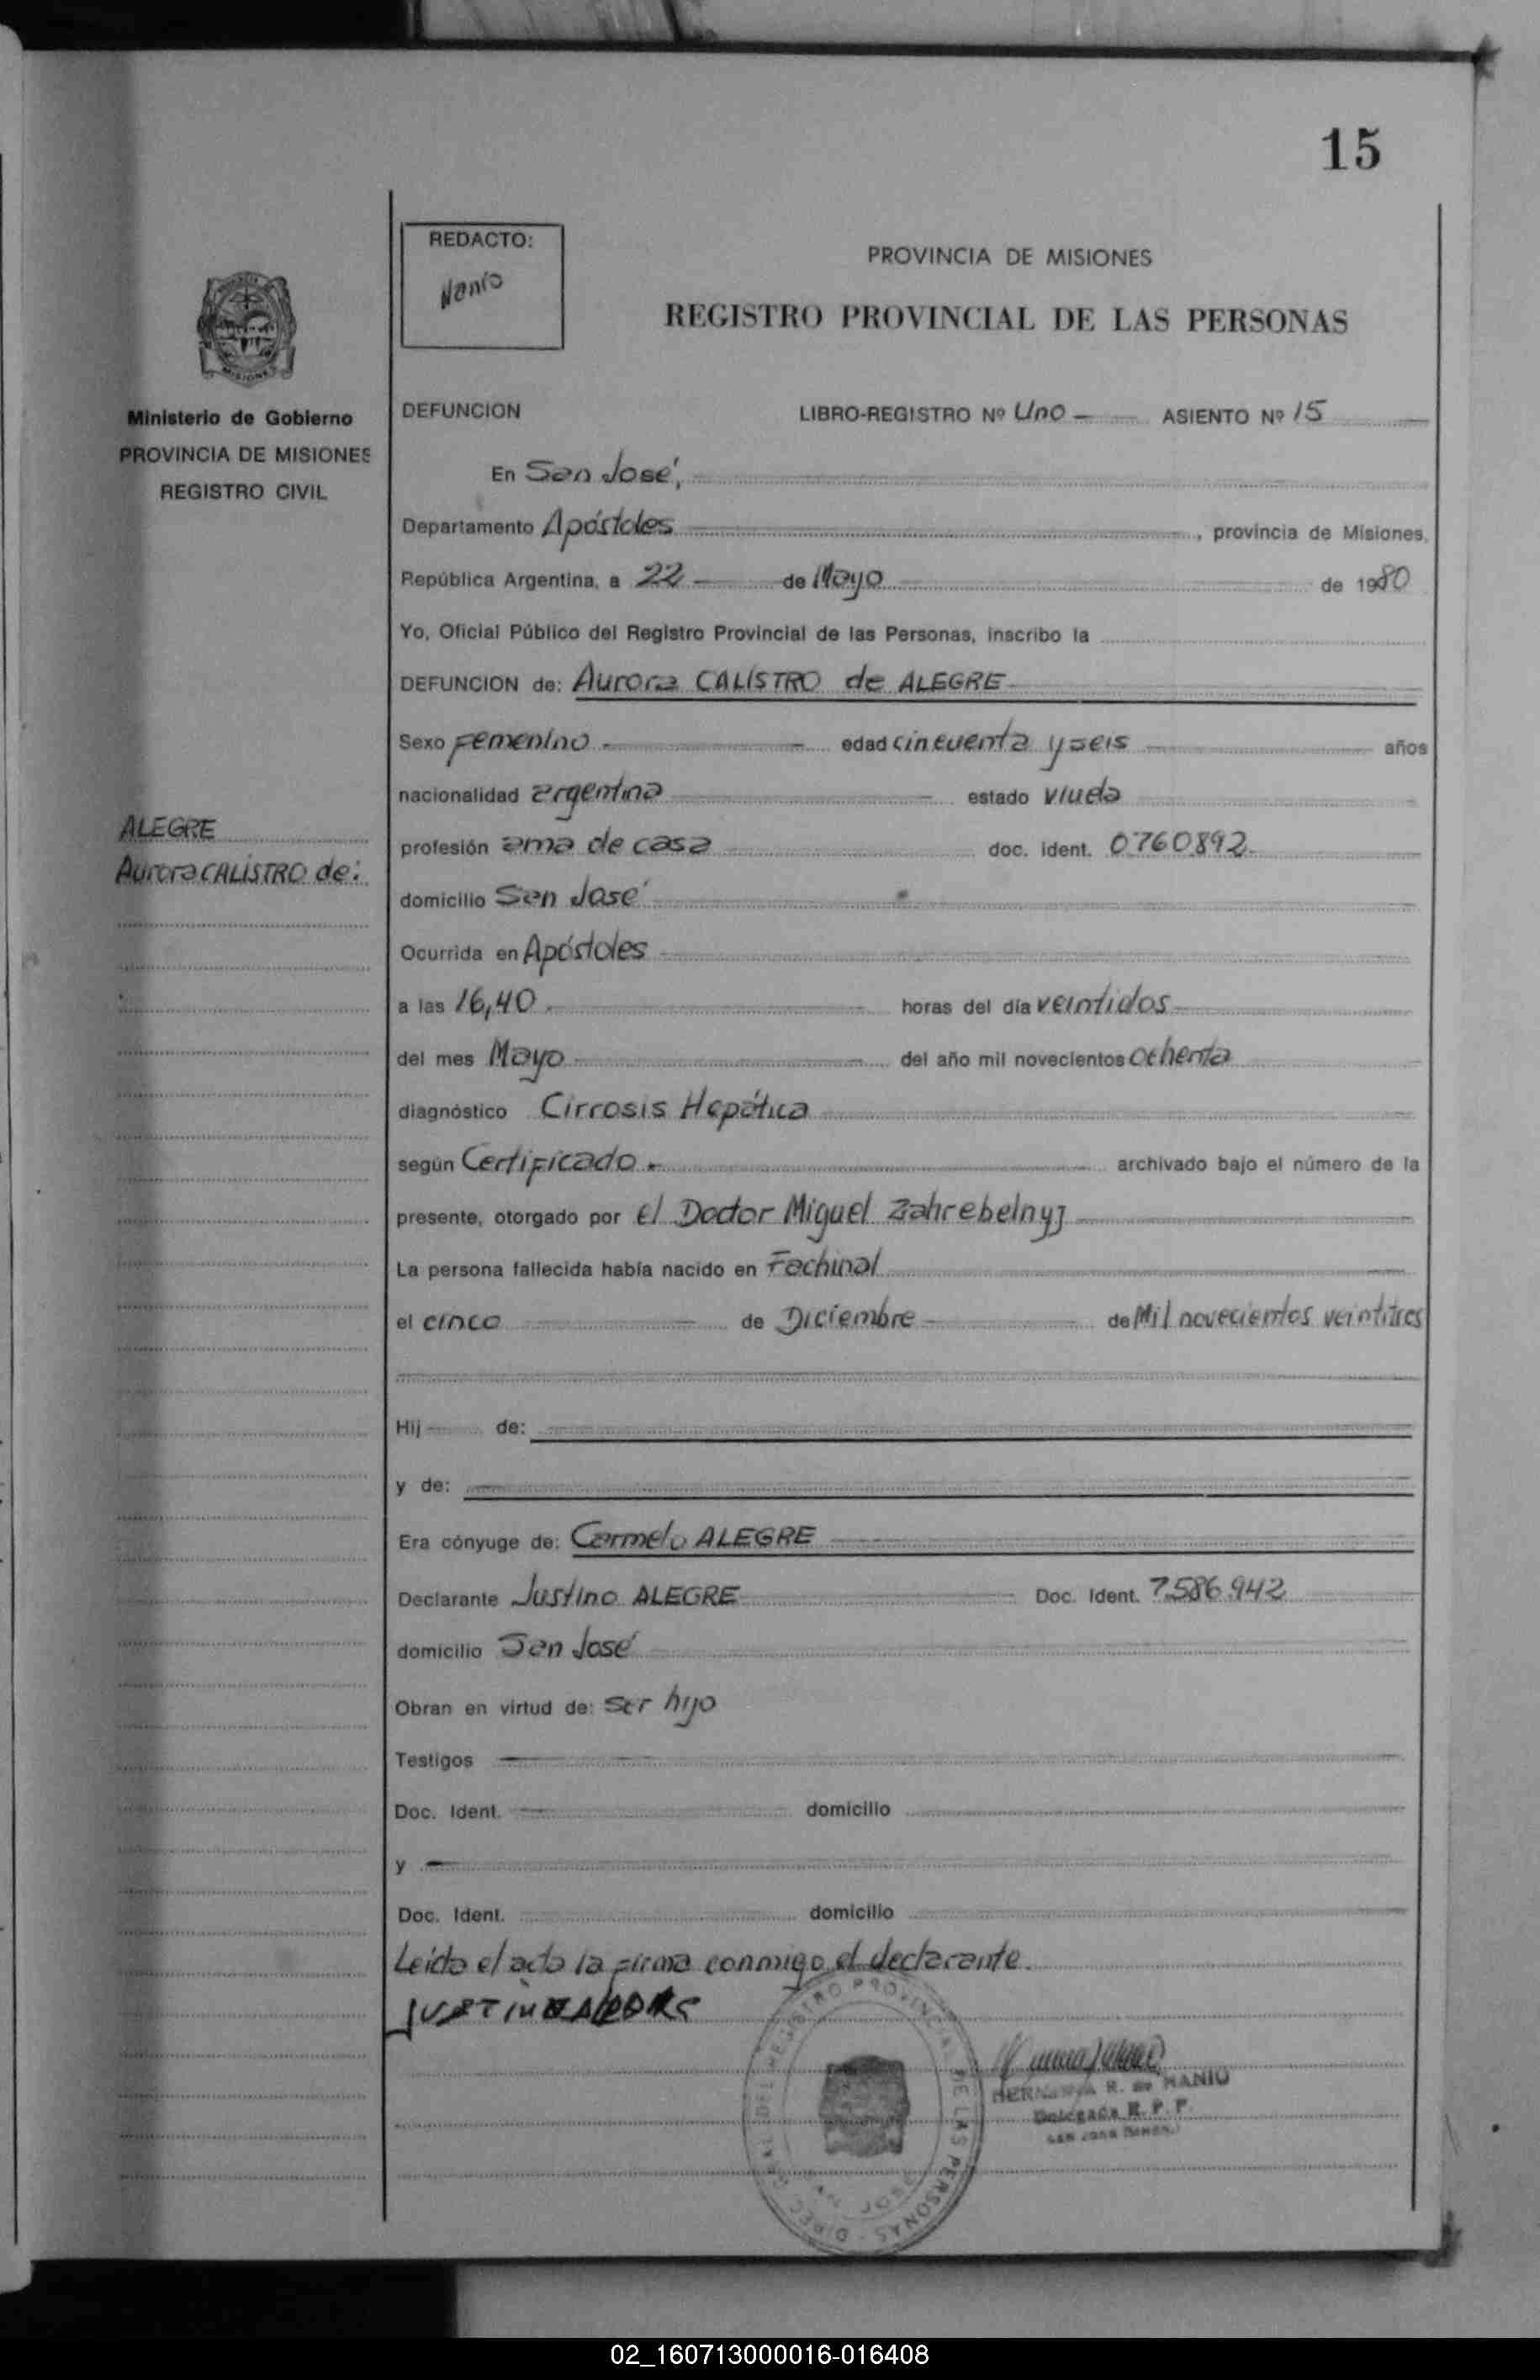 15
REDACTO:
Nanio
PROVINCIA DE MISIONES
REGISTRO PROVINCIAL DE LAS PERSONAS
MISIONES
Ministerio de Gobierno
PROVINCIA DE MISIONES
REGISTRO CIVIL
DEFUNCION LIBRO-REGISTRO Nº Uno ASIENTO Nº 15
En San José,
Departamento Apóstoles, provincia de Misiones,
República Argentina, a 22 de Mayo de 1980
Yo, Oficial Público del Registro Provincial de las Personas, inscribo la
DEFUNCION de: Aurora CALISTRO de ALEGRE
Sexo Femenino edad cincuenta y seis años
nacionalidad argentina estado viuda
ALEGRE
Aurora CALISTRO de:
profesión ama de casa doc. ident. 0760892
domicilio San José
Ocurrida en Apóstoles
a las 16,40 horas del día veintidos
del mes Mayo del año mil novecientos ochenta
diagnóstico Cirrosis Hepática
según Certificado archivado bajo el número de la
presente, otorgado por el Doctor Miguel Zahrebelnyj
La persona fallecida había nacido en Fachinal
el cinco de Diciembre de Mil novecientos veintitres
Hij de:
y de:
Era cónyuge de: Carmelo ALEGRE
Declarante Justino ALEGRE Doc. Ident. 7.586.942
domicilio San José
Obran en virtud de: ser hijo
Testigos
Doc. Ident. domicilio
y
Doc. Ident. domicilio
Leída el acta la firma conmigo el declarante.
DIREC. GRAL. DEL REGISTRO PROVINCIAL DE LAS PERSONAS
SAN JOSE
R. de NANIO
Delegada R. P. P.
02_160713000016-016408